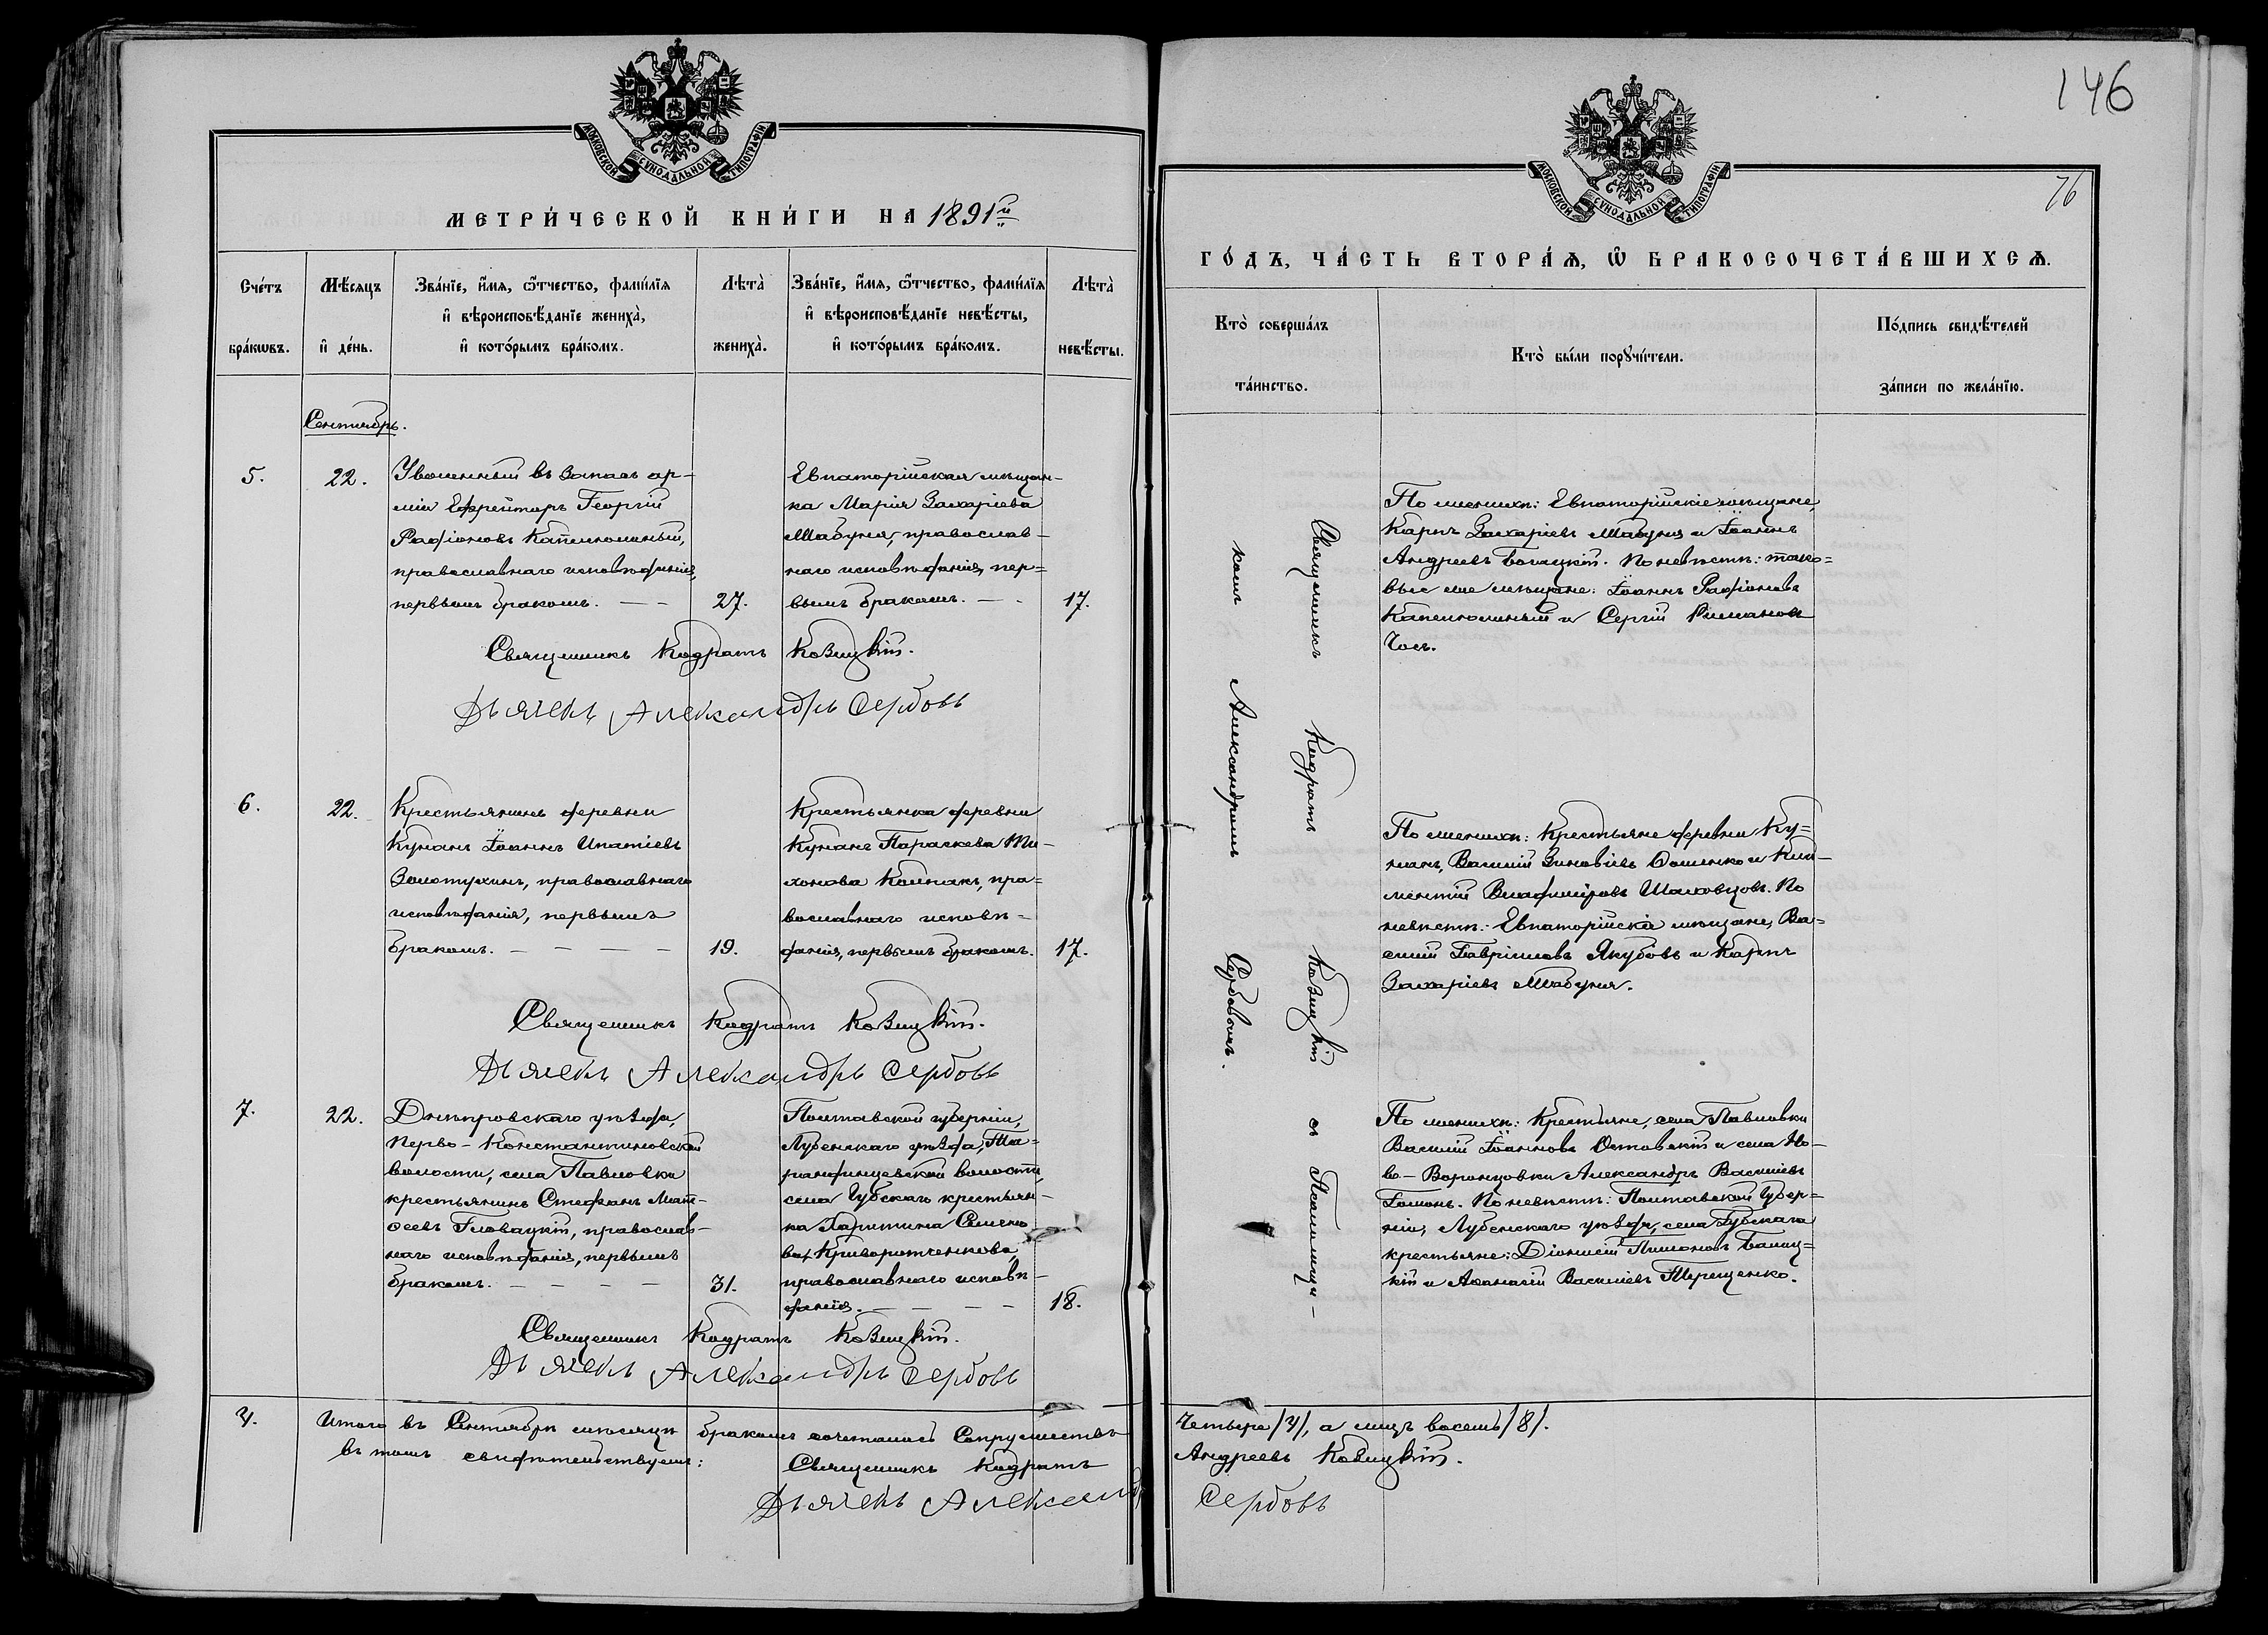 МОСКОВСКОЙ СУНОДАЛЬНОЙ ТИПОГРАФІИ
МЕТРИ́ЧЕСКОЙ КНИ́ГИ НА 1891й
Сче́тъ бра́кѡвъ.
Мѣ́сяцъ и҆ де́нь.
Зва́нїе, и҆́мѧ, ѻ҆́тчество, фами́лїѧ
и҆ вѣроисповѣ́данїе жениха̀,
и҆ кото́рымъ бра́комъ.
Лѣта̀ жениха̀.
Зва́нїе, и҆́мѧ, ѻ҆́тчество, фами́лїѧ
и҆ вѣроисповѣ́данїе невѣ́сты,
и҆ кото́рымъ бра́комъ.
Лѣта̀ невѣ́сты.
Сентябрь.
5.
22.
Уволенный въ запасъ ар-
міи Ефрейторъ Георгій
Родіоновъ Капелюшный,
православнаго исповѣданія,
первымъ бракомъ.
27.
Евпаторійская мѣщан-
ка Марія Захаріева
Шабуня, православ-
наго исповѣданія, пер=
вымъ бракомъ.
17.
Священникъ Кодратъ Козицкій.
Дьячекъ Александръ Сербовъ
6.
22.
Крестьянинъ деревни
Кунанъ Іоаннъ Ипатіевъ
Золотухинъ, православнаго
исповѣданія, первымъ
бракомъ.
19.
Крестьянка деревни
Кунанъ Параскева Ти-
хонова Колпакъ, пра=
вославнаго исповѣ-
данія, первымъ бракомъ.
17.
Священникъ Кодратъ Козицкій.
Дьячекъ Александръ Сербовъ
7.
22.
Днѣпровскаго уѣзда,
Перво-Константиновской
волости, села Павловки
крестьянинъ Стефанъ Мат-
ѳеевъ Гловацкій, православ-
наго исповѣданія, первымъ
бракомъ.
31.
Полтавской губерніи,
Лубенскаго уѣзда, Та=
рандинцевской волости,
села Губскаго крестьян-
ка Харитина Семено-
ва Криворотченкова,
православнаго исповѣ-
данія.
18.
Священникъ Кодратъ Козицкій.
Дьячекъ Александръ Сербовъ
4.
Итого въ Сентябрѣ мѣсяцѣ бракомъ сочеталось Супружествъ
въ томъ свидѣтельствуемъ: Священникъ Кодратъ
Дьячекъ Александръ
146
МОСКОВСКОЙ СУНОДАЛЬНОЙ ТИПОГРАФІИ
76
ГО́ДЪ, ЧА́СТЬ ВТОРА́Ѧ, Ѡ҆ БРАКОСОЧЕТА́ВШИХСѦ.
Кто̀ соверша́лъ та́инство.
Кто̀ бы́ли порꙋчи́тели.
По́дпись свидѣ́телей за́писи по жела́нїю.
Священникъ Кодратъ Козицкій съ Псаломщи-
комъ Александромъ Сербовымъ.
По женихѣ: Евпаторійскіе мѣщане,
Карпъ Захаріевъ Шабуня и Іоаннъ
Андреевъ Балицкій. По невѣстѣ: тако=
вые же мѣщане: Іоаннъ Родіоновъ
Капелюшный и Сергій
По женихѣ: крестьяне деревни Ку=
нанъ, Василій Зиновіевъ и Кли-
ментій Владиміровъ Шаховцовъ. По
невѣстѣ: Евпаторійскіе мѣщане, Ва=
силій Гавріиловъ Якубовъ и Карпъ
Захаріевъ Шабуня.
По женихѣ: Крестьяне, села Павловки
Василій Іоанновъ Остовскій и села Но-
во-Воронцовки Александръ Василіевъ
По невѣстѣ: Полтавской губер=
ніи, Лубенскаго уѣзда, села Губскаго
крестьяне: Діонисій Балиц=
кій и Аѳанасій Василіевъ Терещенко.
Четыре /4/, а лицъ восемь /8/.
Андреевъ Козицкій.
Сербовъ